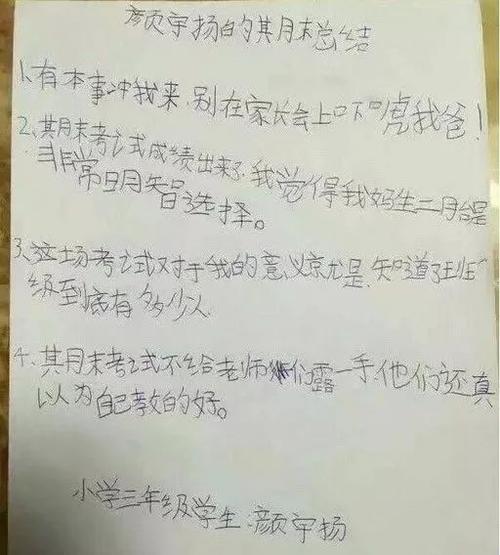 颜宇扬的期末总结
1、有本事冲我来,别在家长会上吓唬我爸!
2、期末考试成绩出来了,我觉得我妈生二胎是
非常明智选择。
3、这场考试对于我的意义就是,知道了班
级到底有多少人
4、期末考试不给老师们露一手,他们还真
以为自己教的好。
小学三年级学生:颜宇扬